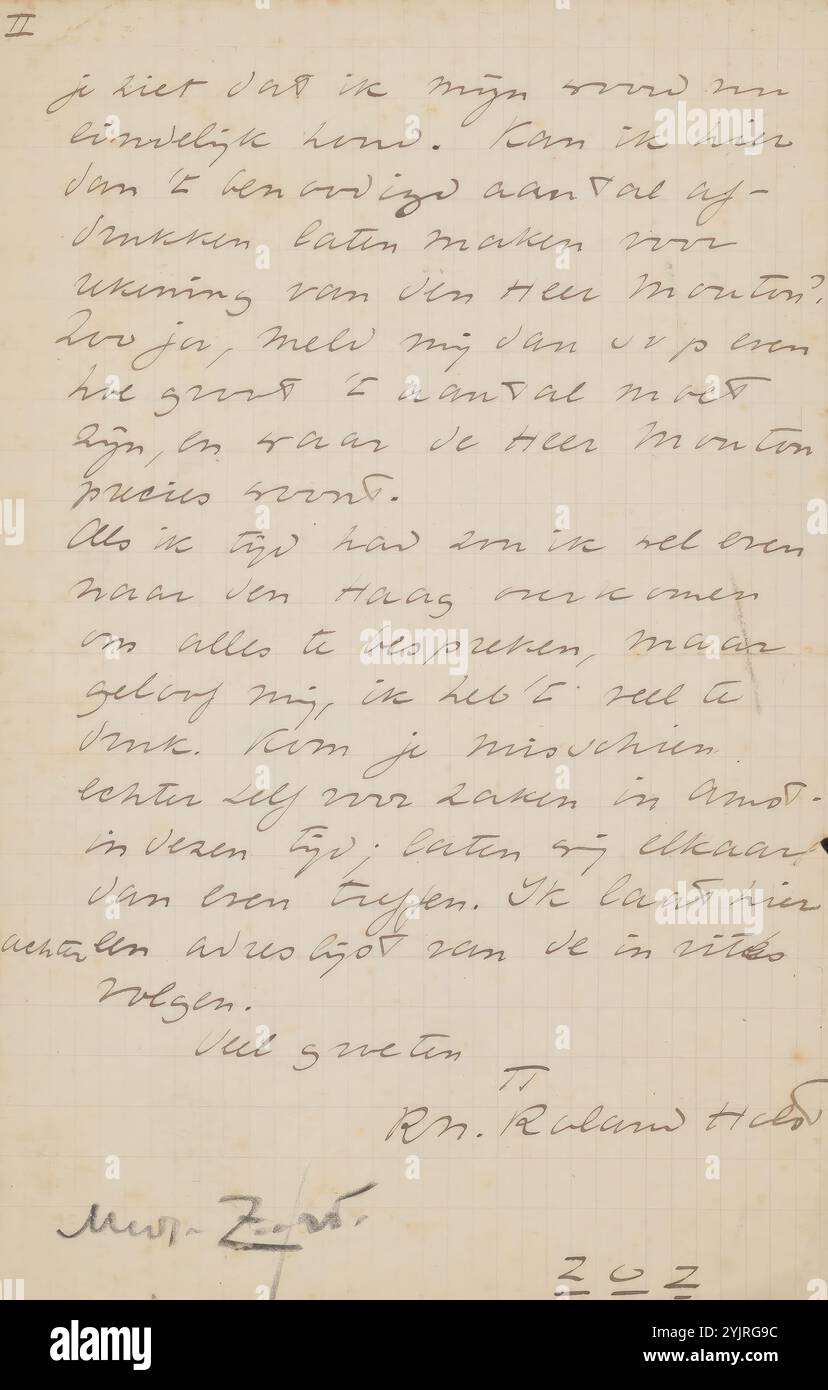 II
je ziet dat ik mijn woord nu
eindelijk houd. Kan ik hier
dan 't benoodigd aantal af-
drukken laten maken voor
rekening van den Heer Mouton?
Zoo ja, meld mij dan svp even
hoe groot 't aantal moet
zijn, en waar de Heer Mouton
precies woont.
Als ik tijd had zou ik wel even
naar den Haag overkomen
om alles te bespreken, maar
geloof mij, ik heb 't veel te
druk. Kom je misschien
echter zelf voor zaken in Amst-
in dezen tijd; laten wij elkaar
dan even treffen. Ik laat hier
achter een adreslijst van de invités
volgen.
Veel groeten
TT
RN. Roland Holst
ZOZ
alamy
Image ID: 2YJRG9C
www.alamy.com